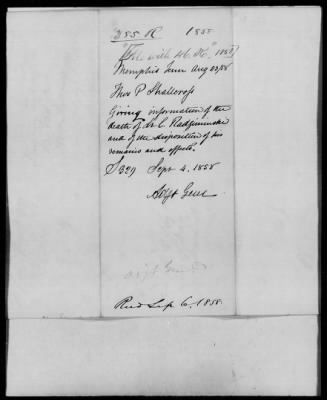 385 R 1858
"File with 46. R." 1858)
Memphis Tenn Aug 23/58
Thos P. Shallcross
Giving information of the
death of Lt C. Radziminski
and of the disposition of his
remains and effects.
S 329 Sept 4. 1858
Adjt Genl
Adjt Genl
Recd Sep 6, 1858.